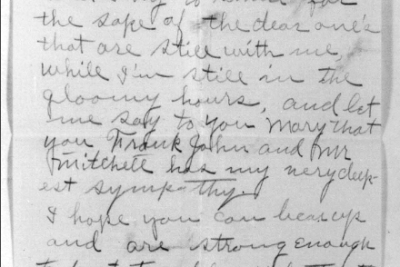 for
the sake of the dear one's
that are still with me,
while I'm still in the
gloomy hours, and let
me say to you Mary that
you, Frank John and Mr
Mitchell has my very deep-
est sympathy.
I hope you can bear up
and are strong enough